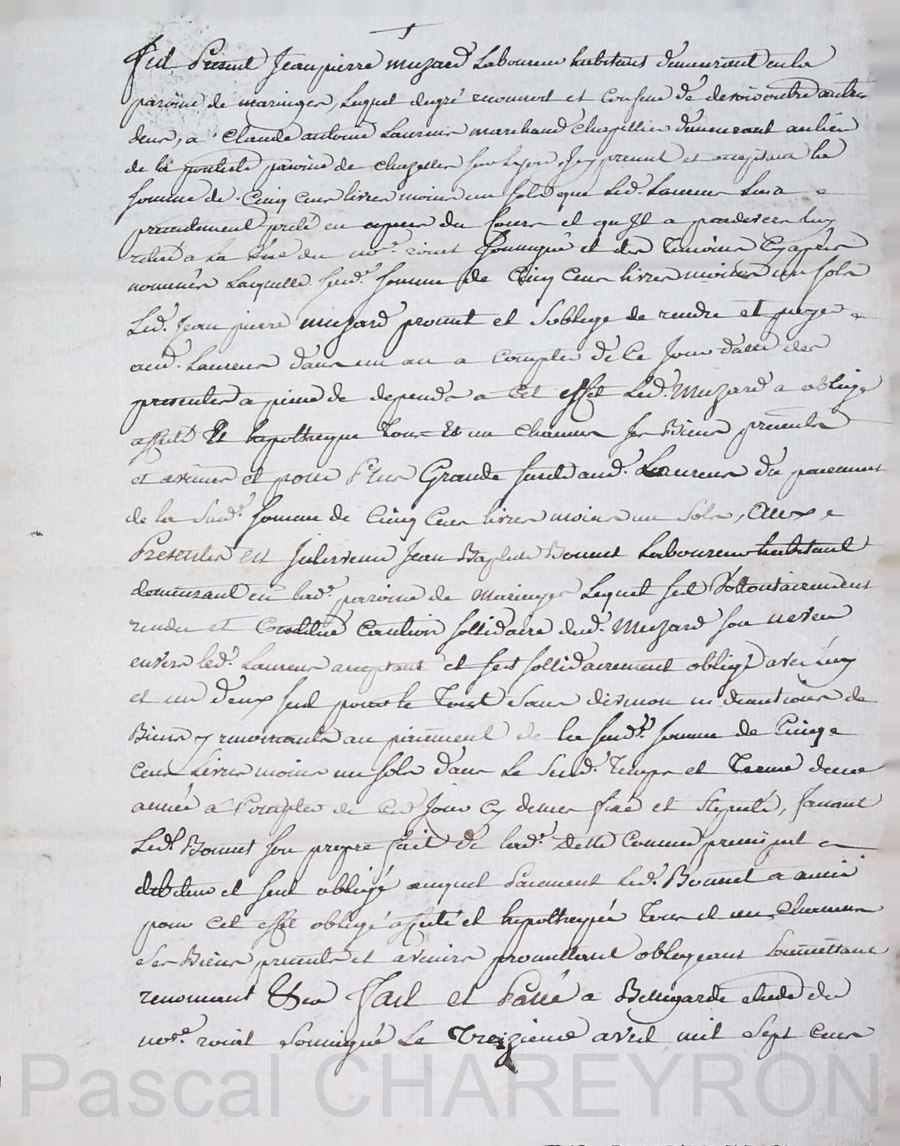 Fut Présent Jean pierre muzard Laboureur habitant demeurant en la
paroisse de maringes, Lequel degré reconnoit et Confesse de devoir entre autre
deux, a Claude antoine Laurens marchand Chapellier demeurant au lieu
de la paroisse de Chazelles sur Lyon, Icy present et acceptant la
Somme de Cinq Cens livres moins un Sols que Led. Laurens Luy a
presentement preté en especes du Cours et qu'Il a pardevers luy
retiré a La vüe du no.re roial Soussigné et des Temoins Cyaprès
nommés Laquelle Sud.e Somme de Cinq Cens livres moins un Sols
Led. Jean pierre muzard promet et Soblige de rendre et payer
aud. Laurens dans un an a Compter de Ce Jour datte des
presentes a peine de depends a Cet effet Led. Muzard a obligé
affecté Et hipotheque Tous Et un Chacun Ses Biens présents
et avenir et pour Plus Grande Sureté aud. Laurens du paiement
de la Sud.e Somme de Cinq Cens livres moins un Sols, Aux
Presentes est Intervenu Jean Baptiste Bonnet Laboureur habitant
demeurant en lad.e paroisse de Maringes Lequel sest Vollontairement
rendu et Constitué Caution Sollidaire dud. Muzard Son neveu
envers led. Laurens acceptant et sest sollidairement obligé avec luy
et un d'eux Seul pour le Tout Sans division ni discution de
Biens y renonçants au paiement de la Sud.e Somme de Cinq
Cens Livres moins un sols dans Le Sud. Temps et Terme d'une
année à Compter de Ce Jour Cy dessus fixé et Stipulé, faisant
Led. Bonnet Son propre fait de lad.e Dette Comme principal
debiteur et Seul obligé auquel Paiement Led. Bonnet a aussi
pour Cet effet obligé affecté et hipothequé Tous et un Chacun
Ses Biens presents et avenirs promettant obligeant Soumettant
renonçant &ca Fait et Passé a Bellegarde etude du
no.re roial Soussigné Le Treizieme avril mil Sept Cens
Pascal CHAREYRON